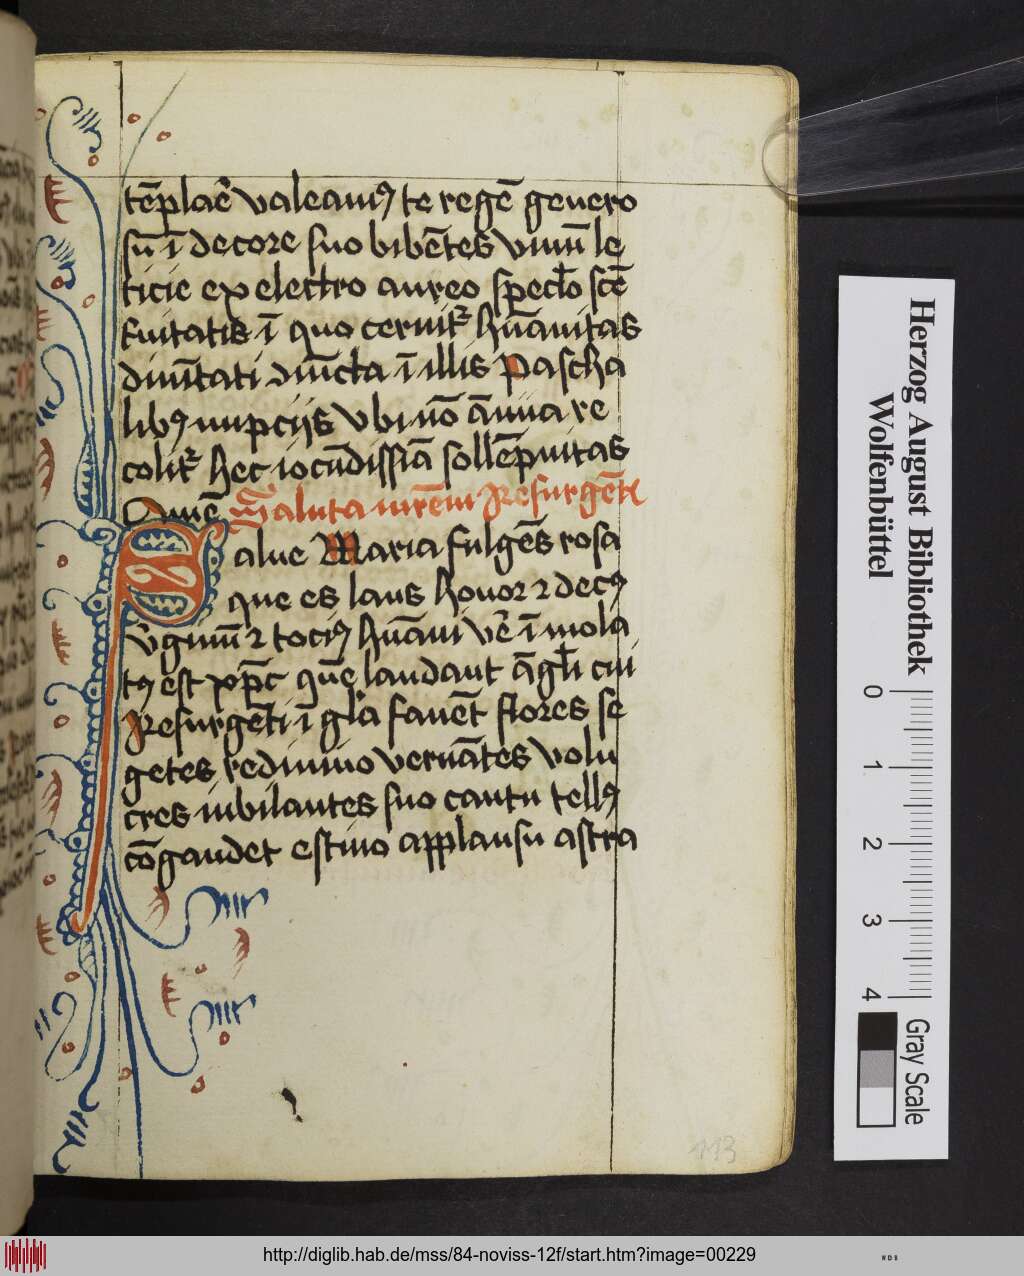 te̅plar̅ valeamꝰ te rege̅ genero
su̅ i̅ decore suo bibe̅tes vinu̅ le
ticie ex electro aureo spec̅lo sce̅
fuitatis i̅ quo cernit᷑ hu̅anitas
divi̅tati iu̅cta i̅ illis Pascha
libꝰ nupcijs vbi no̅ a̅nua re
colit᷑ hec iocu̅dissia̅ solle̅pnitas
Ame̅ Saluta mr̅em Resurge̅t̅
alue Maria fulge̅s rosa
que es laus honor ⁊ decꝰ
v̓ginu̅ ⁊ tociꝰ hu̅ani ve̅ i̅mola
tꝰ est xp̅c que̅ laudant a̅gl̅i cui
Resurge̅ti i̅ gl̓a fauent flores se
getes rediuiuo verna̅tes volu
cres iubilantes suo cantu tellꝰ
co̅gaudet estiuo applausu astra
113
Herzog August Bibliothek
Wolfenbüttel
0 1 2 3 4
Gray Scale
http://diglib.hab.de/mss/84-noviss-12f/start.htm?image=00229